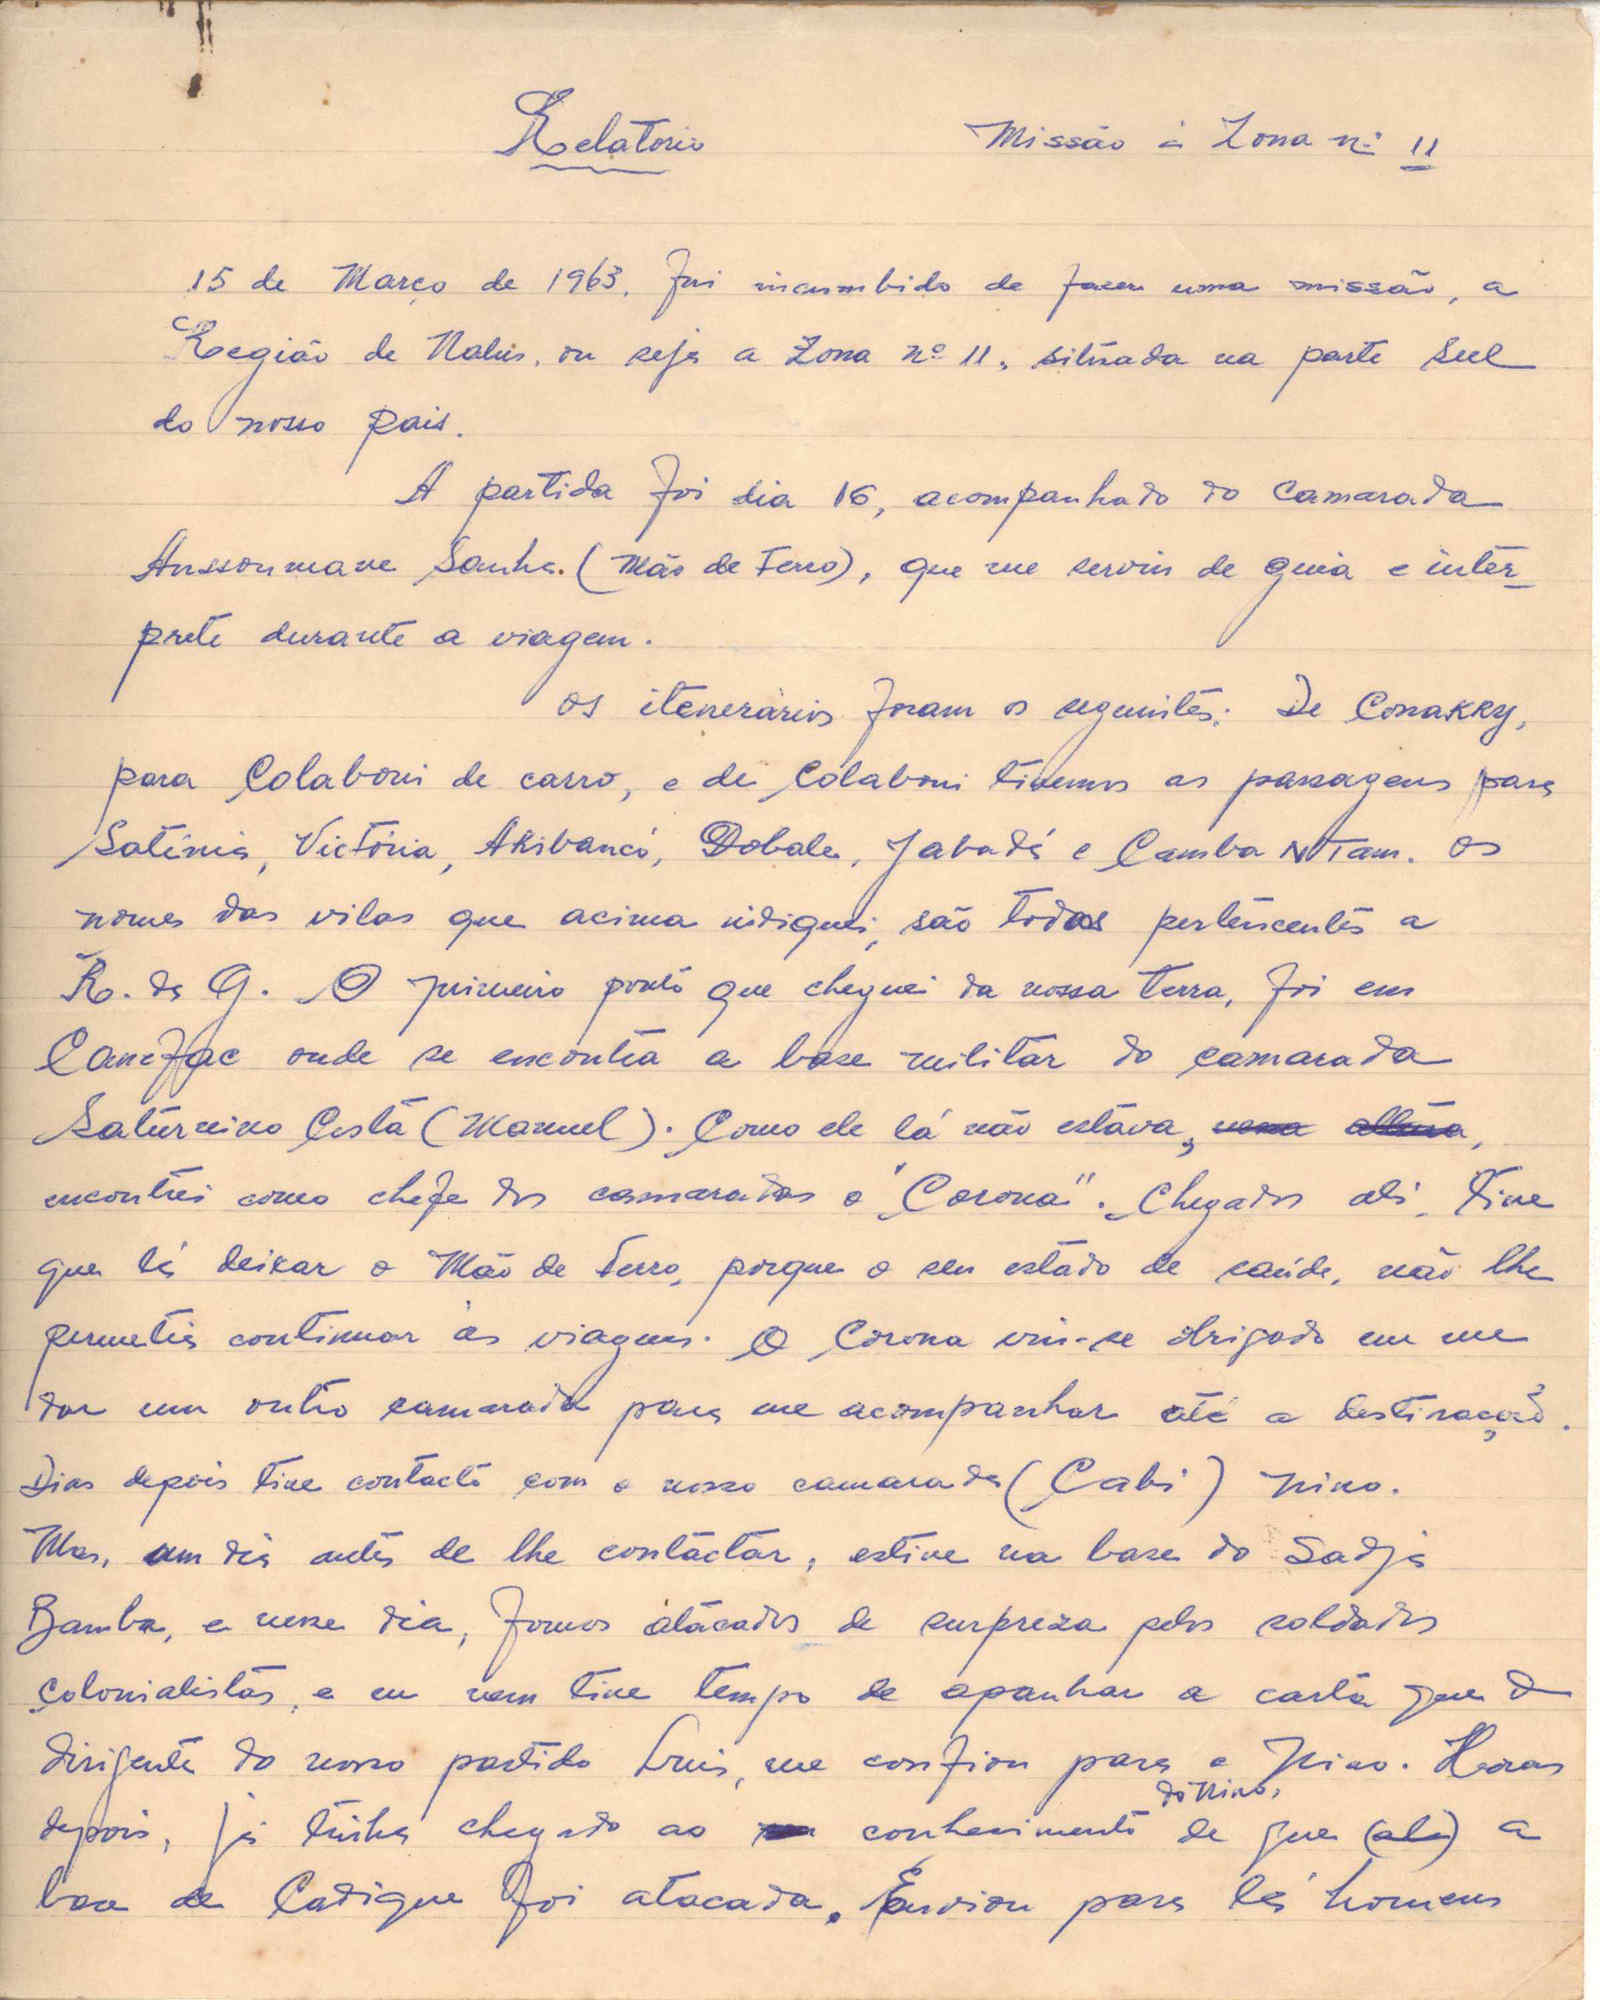 Relatorio Missão à Zona nº 11
15 de Março de 1963, fui incumbido de fazer uma missão, a
Região de Nalus, ou seja a Zona nº 11, situada na parte Sul
do nosso Pais.
A partida foi dia 16, acompanhado do Camarada
Anssoumane Sanha. (Mão de Ferro), que me serviu de guia e inter_
prete durante a viagem.
Os itenerários foram os seguintes: De Conakry,
para Colaboni de carro, e de Colaboni tivemos as passagens para
Saténia, Victória, Akibancó, Dobale, Jabadá e Camba NTam. Os
nomes das vilas que acima indiquei, são todas pertencentes a
R. da G. O primeiro ponto que cheguei da nossa Terra, foi em
Canefac onde se encontra a base militar do camarada
Saturnino Costa (Manuel). Como ele lá não estava,
encontrei como chefe dos camaradas o "Corona". Chegados ali, tive
que lá deixar o Mão de Ferro, porque o seu estado de saúde, não lhe
permetia continuar às viagens. O Corona viu-se obrigado em me
dar um outro camarada para me acompanhar até a destinação.
Dias depois tive contacto com o nosso camarada (Cabi) Nino.
Mas, um dia antes de lhe contactar, estive na base do Sadjá
Bamba, e nesse dia, fomos atacados de surpreza pelos soldados
colonialistas, e eu nem tive tempo de apanhar a carta que o
dirigente do nosso partido Luis, me confiou para o Nino. Horas
depois, já tinha chegado ao conhecimento do Nino, de que (ala) a
base de Cadique foi atacada. Enviou para lá homens